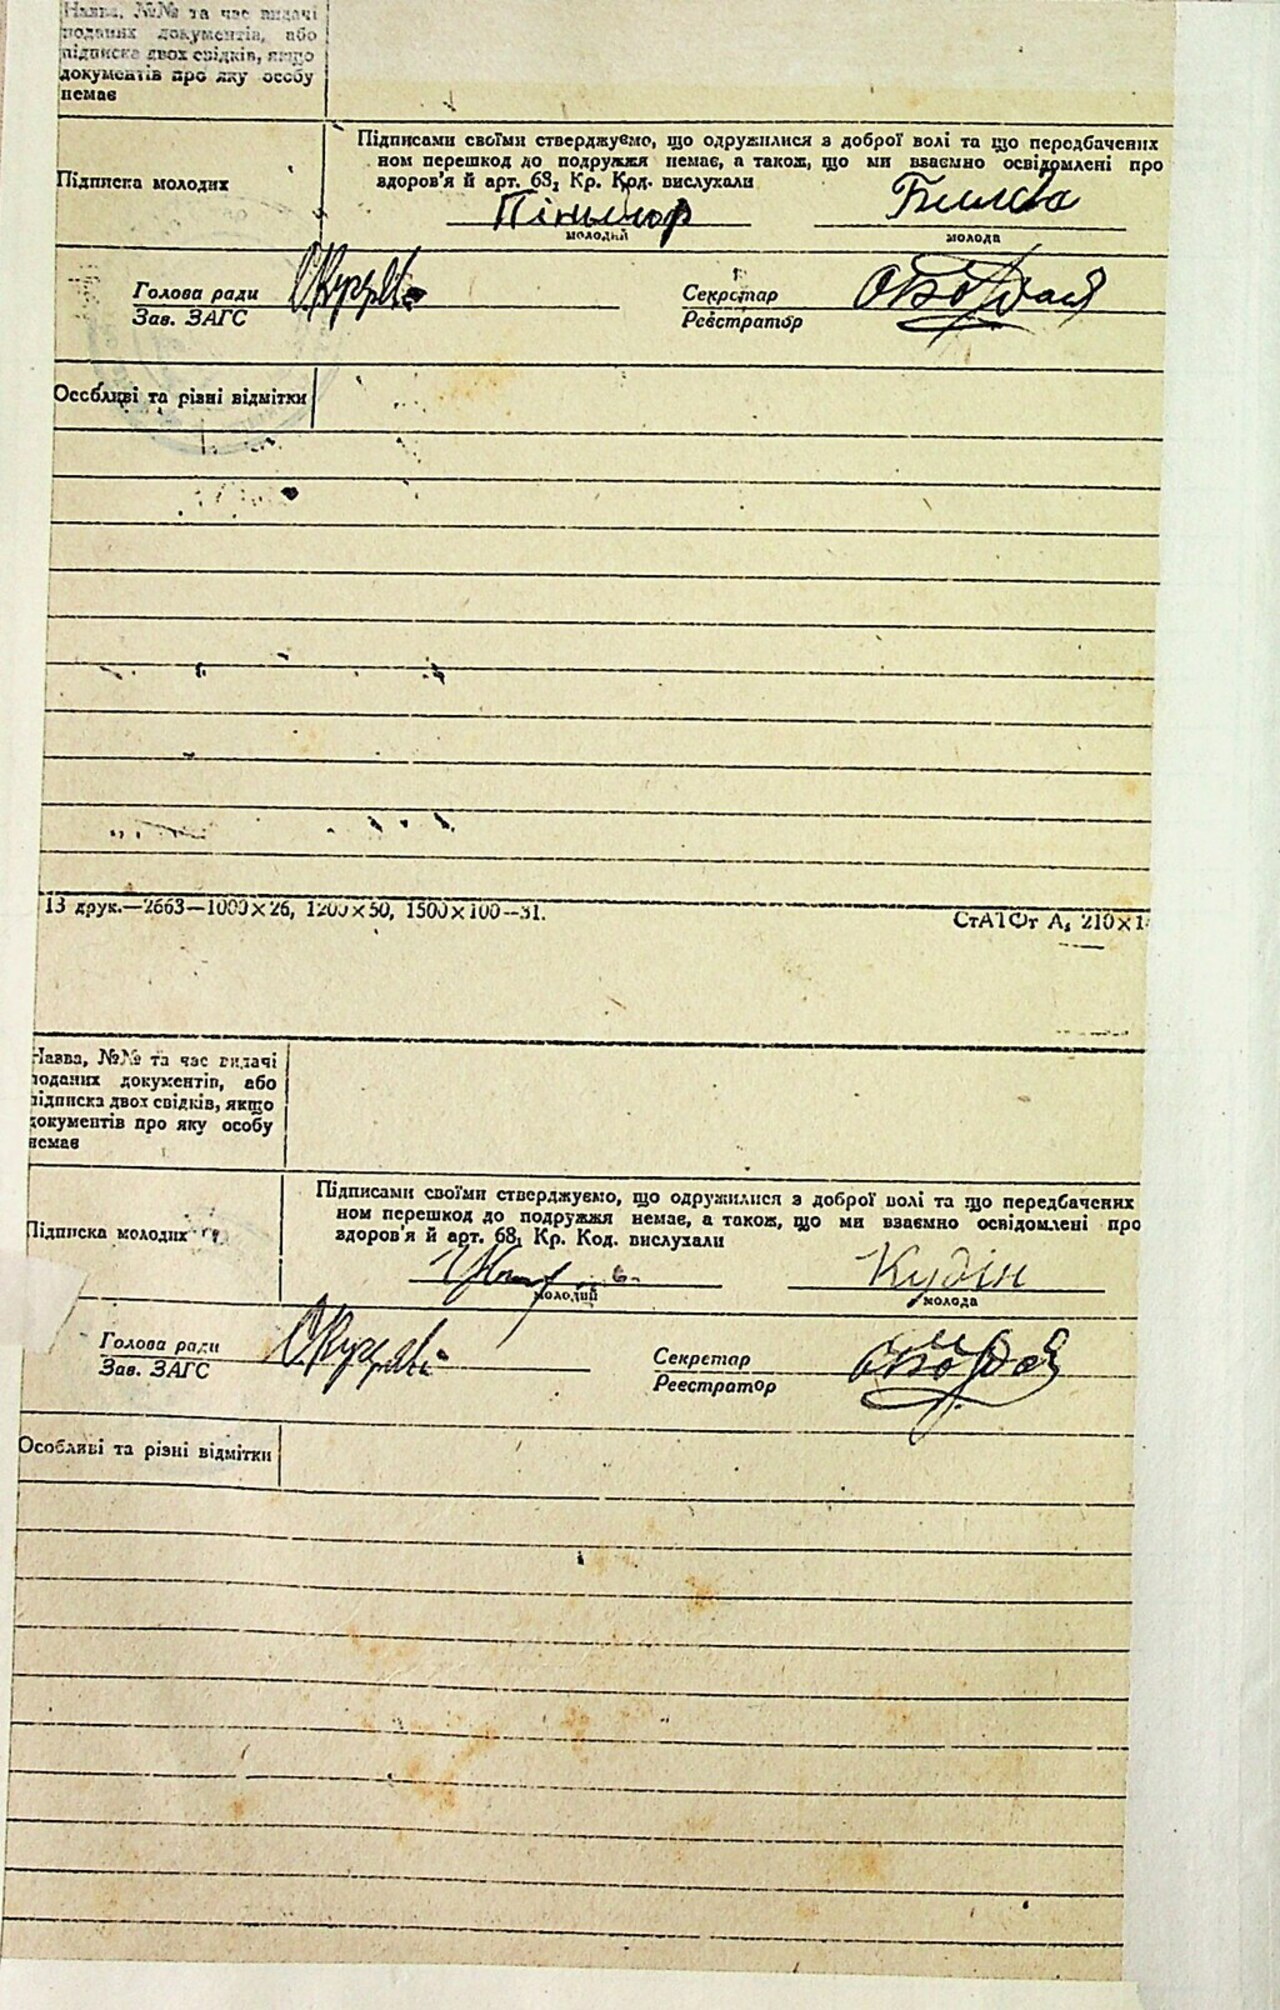 Назва, №№ та час видачі
поданих документів, або
підписка двох свідків, якщо
документів про яку особу
немає
Підписка молодих
Підписами своїми стверджуємо, що одружилися з доброї волі та що передбачених
ном перешкод до подружжя немає, а також, що ми взаємно освідомлені про
здоров'я й арт. 68, Кр. Код. вислухали
молодий
молода
Голова ради
Зав. ЗАГС
Секретар
Реєстратор
Особливі та різні відмітки
13 друк.—2663—1000×26, 1200×50, 1500×100—31.
Назва, №№ та час видачі
поданих документів, або
підписка двох свідків, якщо
документів про яку особу
немає
Підписка молодих
Підписами своїми стверджуємо, що одружилися з доброї волі та що передбачених
ном перешкод до подружжя немає, а також, що ми взаємно освідомлені про
здоров'я й арт. 68, Кр. Код. вислухали
Кудін
молодий
молода
Голова ради
Зав. ЗАГС
Секретар
Реєстратор
Особливі та різні відмітки